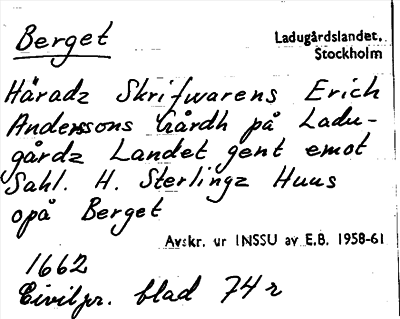 Berget
Ladugårdslandet,
Stockholm
Häradz Skrifwarens Erich
Anderssons Gårdh på Ladu-
gårdz Landet gent emot
Sahl. H. Sterlingz Huus
opå Berget
Avskr. ur INSSU av E.B. 1958-61
1662
Civilpr. blad 74 r